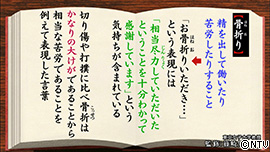 【骨折り】
ほねお
精を出して働いたり
苦労したりすること
「お骨折りいただき…」
という表現には
「相当尽くしていただいた
ということを十分わかって
感謝しています」という
気持ちが含まれている
切り傷や打撲に比べ骨折は
かなりの大けがであることから
相当な苦労であることを
例えて表現した言葉
©NTV